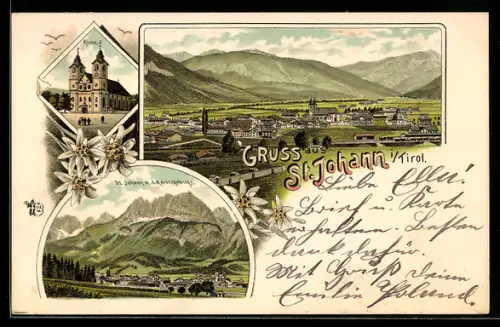 Kirche.
GRUSS AUS
St. Johann i/Tirol.
St. Johann m. d. Kaisergebirge.
Liebe Elly!
Brief u. Karte
erhalten. Besten
dank dafür.
Mit Gruß Deine
Emilie